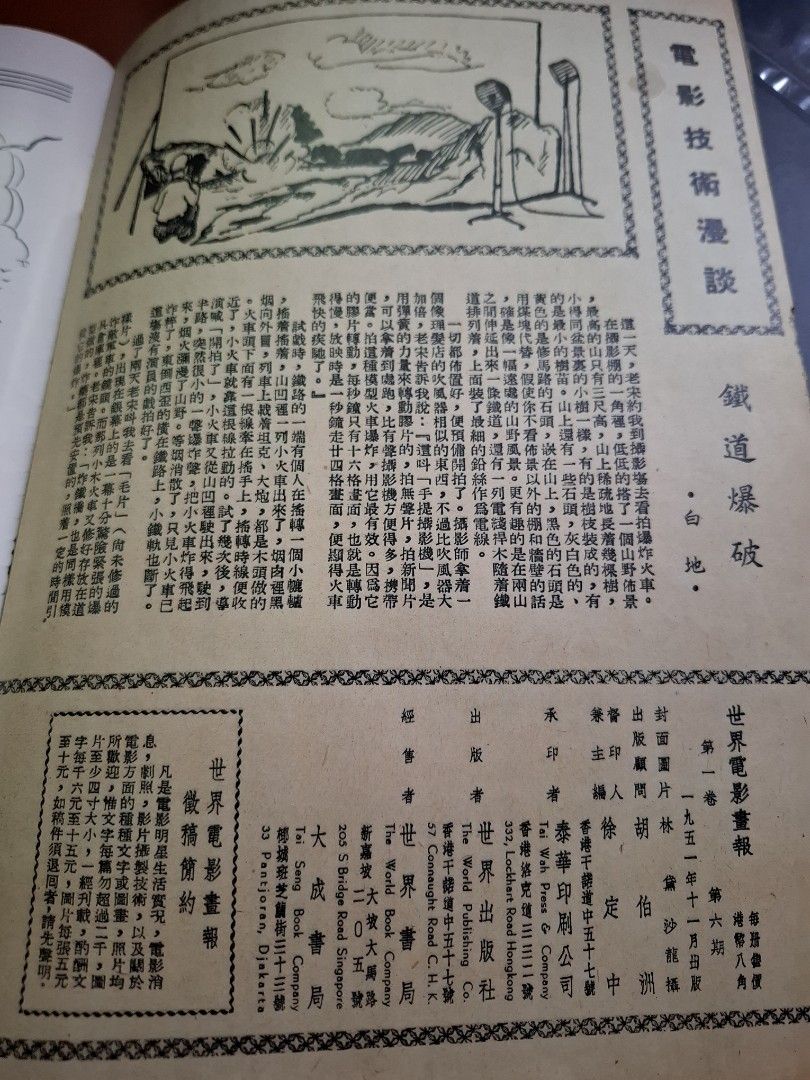 電影技術漫談
鐵道爆破
·白地·
這一天，老宋約我到攝影場去看拍爆炸火車。
在攝影棚的一角裡，低低的搭了一個山野佈景
，最高的山只有三尺高，山上稀疏地長着幾棵樹，
小得同盆景裏的小樹一樣，有的是樹枝裝成的，有
的是最小的樹苗。山上還有一些石頭，灰白色的、
黃色的是修馬路的石頭，嵌在山上，黑色的石頭是
用煤塊代替，假使你不看佈景以外的棚和牆壁的話
，確是像一幅遠處的山野風景。更有趣的是在兩山
之間伸延出來一條鐵道，還有一列電綫桿木隨着鐵
道排列着，上面裝了最細的鉛絲作爲電線。
一切都佈置好，便預備開拍了。攝影師拿着一
個像理髮店的吹風器相似的東西，不過比吹風器大
加倍，老宋告訴我說：『這叫「手提攝影機」，是
用彈簧的力量來轉動膠片的，拍無聲片，拍新聞片
，可以拿着到處跑，比有聲攝影機方便得多，携帶
便當。拍這種模型火車爆炸，用它最有效。因爲它
的膠片轉動，每秒鐘只有十六格畫面，也就是轉動
得慢，放映時是一秒鐘走廿四格畫面，便顯得火車
飛快的疾馳了。』
試戲時，鐵路的一端有個人在搖轉一個小轆轤
，搖着搖着，山凹裡一列小火車出來了，烟肉裡黑
烟向外冒，列車上載着坦克、大炮，都是木頭做的
。火車頭下面有一根線牽在搖手上，搖轉時線便收
近了，小火車就靠這根線拉動的。試了幾次後，導
演喊「開拍了」，小火車又從山凹裡駛出來，駛到
半路，突然很小的一聲爆炸聲，把小火車炸得飛起
來，烟火瀰漫了山野。等烟消散了，只見小火車已
炸碎了，東倒西歪的橫在鐵路上，小鐵軌也斷了。
這場沒有演員的戲拍好了。
過了兩天老宋叫我去看「毛片」（尙未修過的
樣片），出現在銀幕上的是一幕十分驚險緊張的爆
炸敵軍車的鏡頭。而那列小木火車又修好存放在道
具倉庫裏，老宋告訴我：「炸鐵橋，也是同樣用模
世界電影畫報
第一卷　第六期
一九五一年十一月出版
每册售價
港幣八角
封面圖片 林黛 沙龍攝
出版顧問 胡伯洲
督印人
兼主編 徐定中
香港干諾道中五十七號
承印者 泰華印刷公司
Tai Wah Press & Company
香港洛克道三三二號
332, Lockhart Road Hongkong
出版者 世界出版社
The World Publishing Co.
香港干諾道中五十七號
57 Connaught Road C. H. K.
經售者 世界書局
The World Book Company
新嘉坡大坡大馬路二〇五號
205 S Bridge Road Singapore
大成書局
Tai Seng Book Company
椰城班芝蘭街三十三號
33 Pantjoran, Djakarta
世界電影畫報
徵稿簡約
凡是電影明星生活實況，電影消
息，劇照，影片攝製技術，以及關於
電影方面的種種文字或圖畫，照片均
所歡迎，惟文字每篇勿超過二千，圖
片至少四寸大小，一經刋載，酌酬文
字每千六元至十五元，圖片每張五元
至十元，如稿件須退回者，請先聲明。